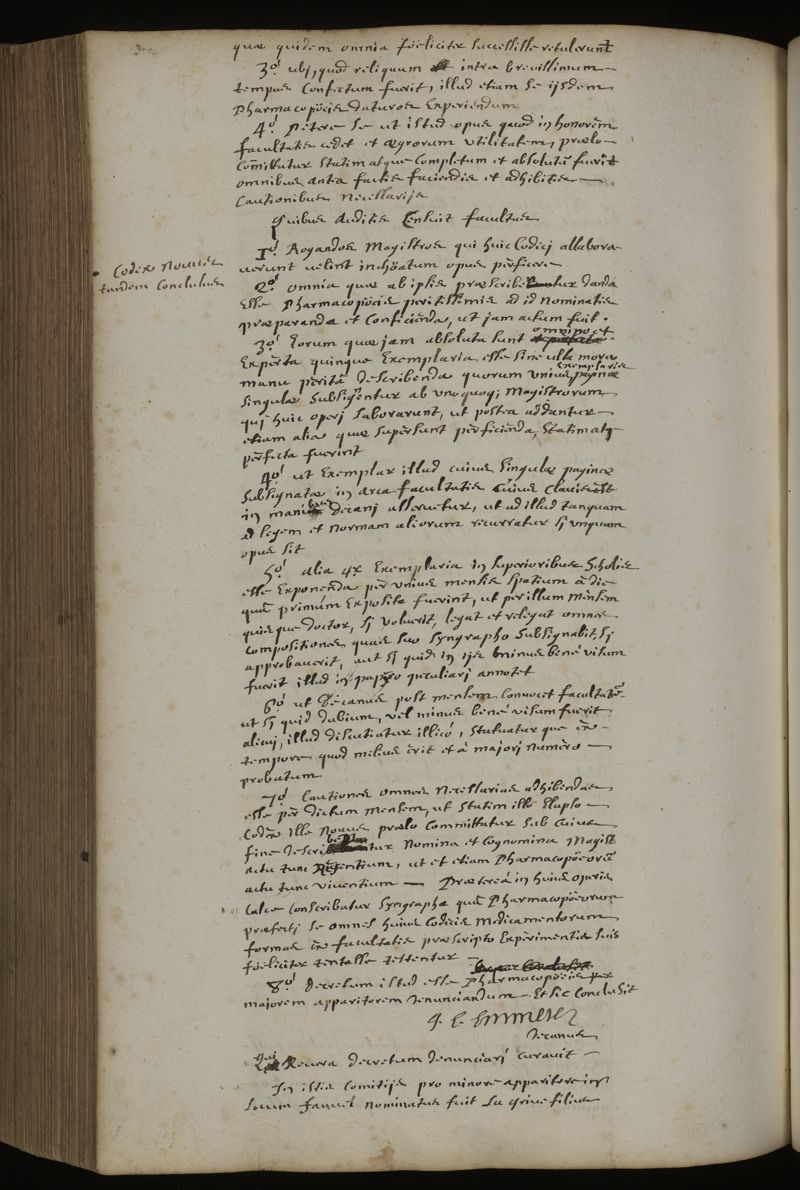 quae quidem omnia foeliciter successisse retulerunt
3º ubj, quod reliquum intra brevissimum
tempus confectum fuerit, illud etiam se ijsdem
Pharmacopoeis daturos experiendum
4º Petere se ut istud opus quod in honorem
facultatis cedet et aegrorum utilitatem, praelo
committatur statim atque completum et absolutū fuerit
omnibus antea factis faciendis et adhibitis
Cautionibus necessarijs
Quibus auditis Censuit facultas
1º Rogandos Magistros qui huic Codicj allabora
verunt velint inchoatum opus perficere
Codex novus
tandem conclusus
2º omnia quae ab ipsis praescribentur danda
esse Pharmacopoeis peritissimis ad id nominatis
praeparanda et conficienda, ut jam actum fuit.
3º Eorum quae jam absoluta sunt omnino et
experta quinque exemplaria esse sine ulla mora
manu peritâ describenda quorum unius exemplaris paginae
singulae subsignentur ab unoquoq; Magistrorum
quj huic operj laborarunt, ut postea addantur
etiam alia quae supersunt perficienda, statimatq
perfecta fuerint
4º ut exemplar illud cuius singulae paginae
subsignatae in arca facultatis cuius clavis est
in manibus decanj asservetur, ut ad illud tanquam
ad legem et normam aliorum recurratur sj unquam
opus sit
5º alia 4x exemplaria in superioribus scholis
esse exponenda per unius mensis spatium a die
quâ primum exposita fuerint, ut per illum mensem
quisque doctor, sj voluerit, legat et relegat omnes
compositiones quas suo syngrapho subsignabit, sj
approbaverit, aut sj quid in ijs minus bene visum
fuerit illud in papyro peculiarj annotet
6º ut Decanus post mensem convocet facultatē
ut sj quid dubium, vel minus bene visum fuerit
alicuj, illud discutiatur illicó, statuatur que
tempore quod melius erit et a majorj numero
probatum
7º Cautiones omnes necessarias adhibendas
esse per dictum mensem, ut statim illo elapso
Codex ille novus praelo committatur sub cuius
fine describentur nomina et cognomina Magist
actu tunc Regentium, ut et etiam Pharmacopoeorū
actu tunc viventium Praeterea in huius operis
calce conscribatur syngrapha quâ Pharmacopoeorum
praefectj se omnes huius Codicis medicamentorum
formas facultatis praescripto experimentis suis
foeliciter tentasse testentur
8º decretum istud esse Pharmacopoeis per
majorem apparitorem denunciandum Et sic conclusit
decanus
Qui Revera decretum denunciarj curavit
In istis Comitijs pro minore apparitore in
locum nominatus fuit La Grive filius